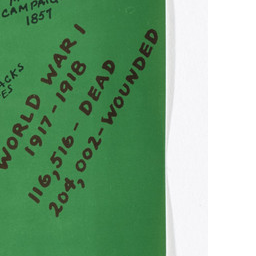 CAMPAIG
1857
ACKS
ES
WORLD WAR I
1917-1918
116,516- DEAD
204,002-WOUNDED